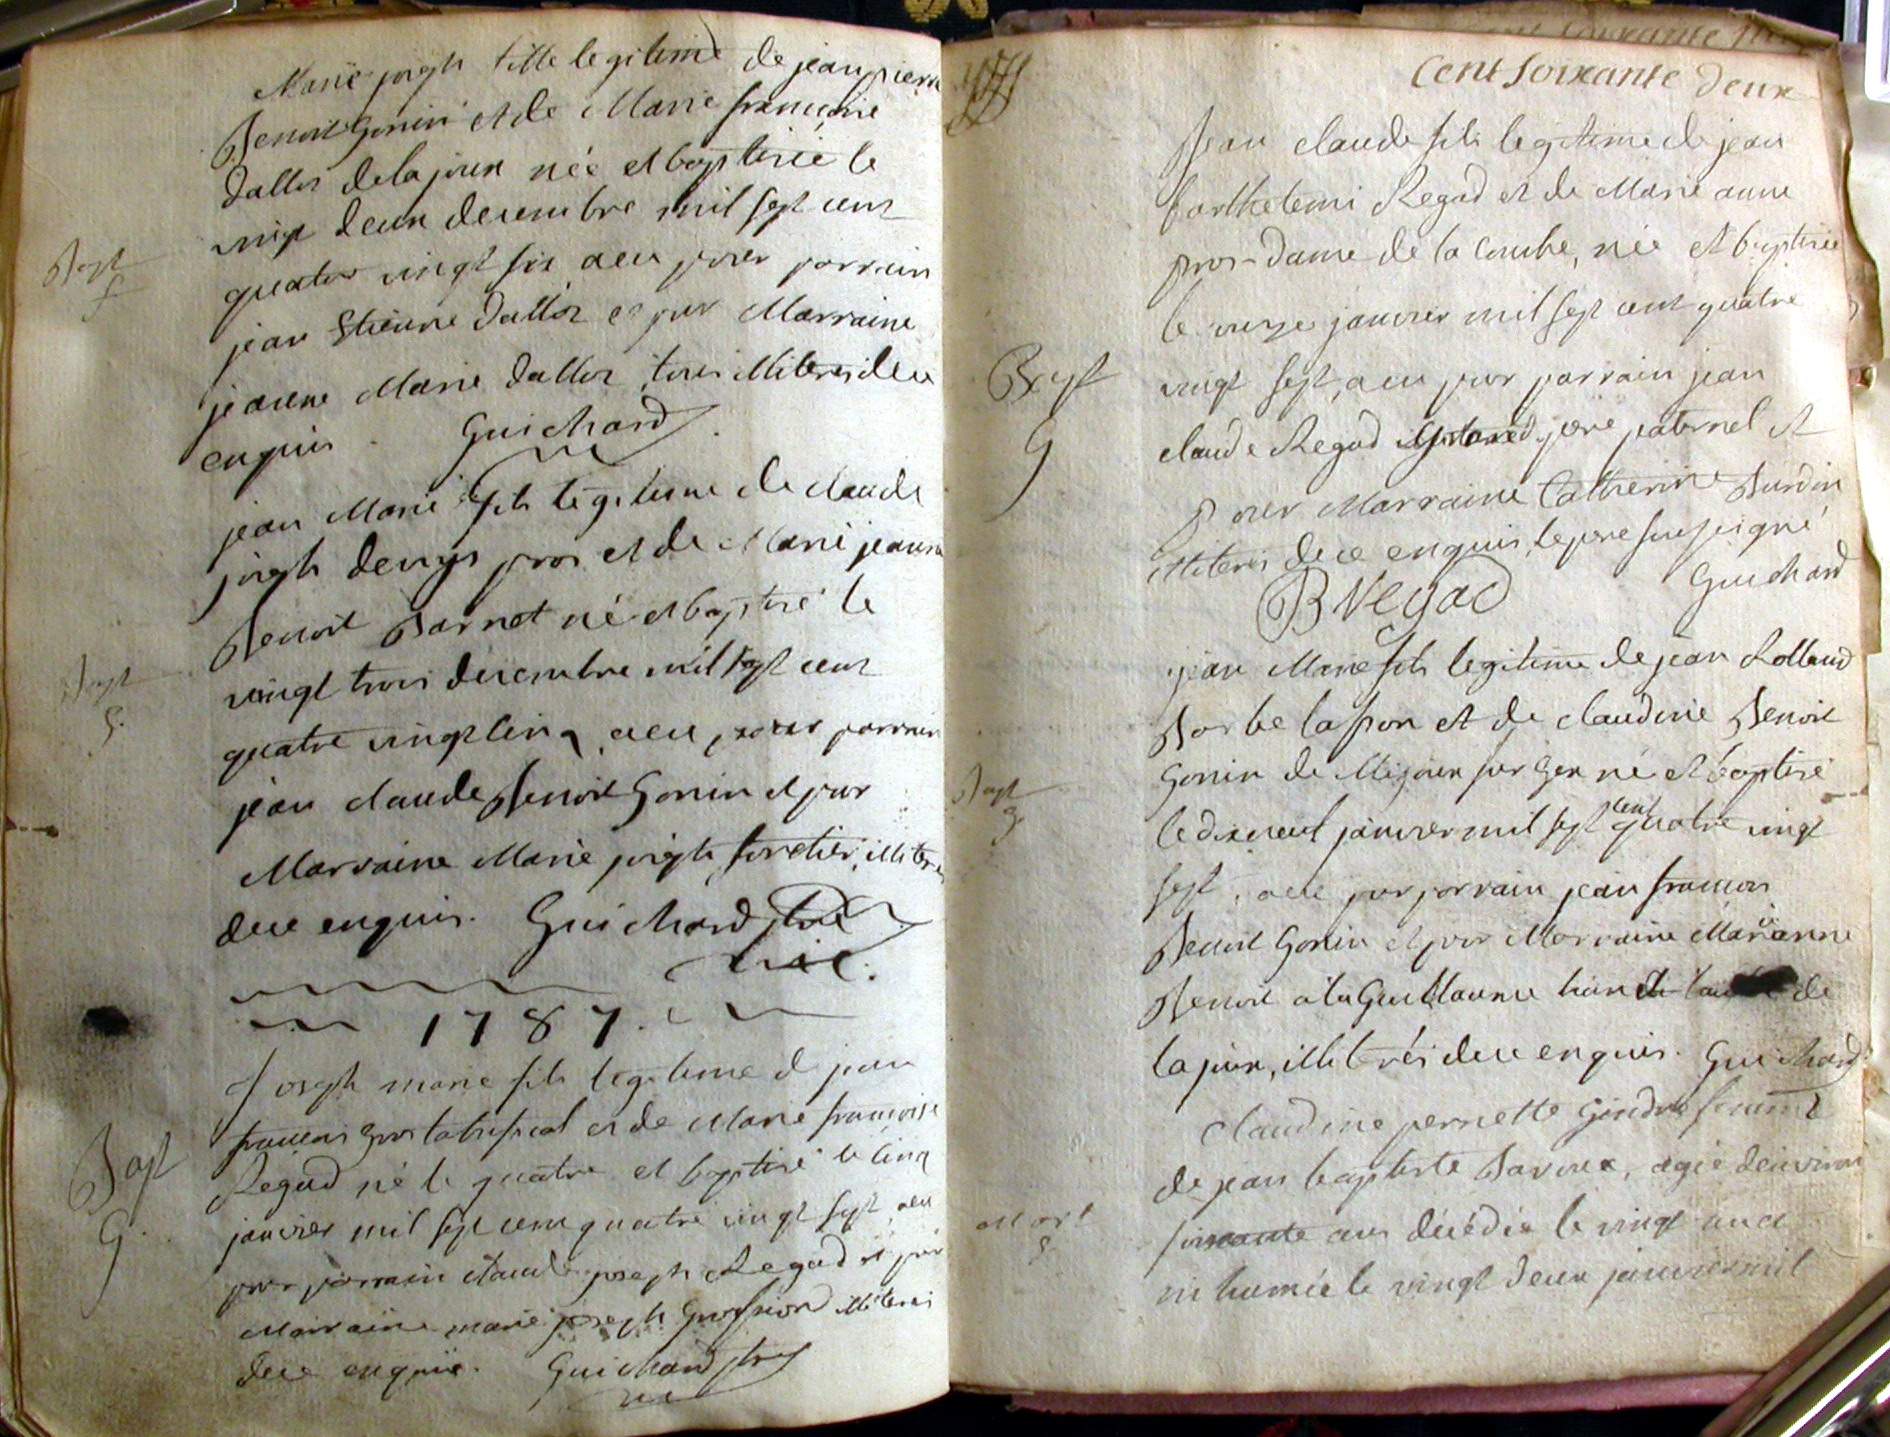 Marie joseph fille legitime de jean pierre
Benoit Gonin et de Marie francoise
Dalloz de la joux née et baptisée le
vingt deux decembre mil sept cent
quatre vingt six a eu pour parrain
Bapt
f
jean Etienne Dalloz et pour Marraine
jeanne Marie Dalloz tous illiterés de ce
enquis Guichard
jean Marie fils legitime de claude
joseph denys pros et de Marie jeanne
Benoit Barnet né et baptisé le
vingt trois decembre mil sept cent
Bapt
G.
quatre vingt cinq a eu pour parrain
jean claude Benoit Gonin et pour
Marraine Marie joseph forétier, illiterés
de ce enquis. Guichard ptre
vic.
1787.
Joseph marie fils legitime de jean
francois et de Marie francoise
Bapt
G.
Regad né le quatre et baptisé le cinq
janvier mil sept cent quatre vingt sept, a eu
pour parrain claude joseph Regad et pour
Marraine marie joseph Grospiron illiterés
de ce enquis. Guichard ptre
Cent Soixante Deux
Jean claude fils legitime de jean
barthelemi Regad et de Marie anne
pros-dame de la Combe, née et baptisée
le onze janvier mil sept cent quatre
Bapt
G
vingt sept, a eu pour parrain jean
claude Regad pere paternel et
pour Marraine Catherine Burdin
illiterés de ce enquis, le pere soussigné
B Regad Guichard
jean Marie fils legitime de jean Rolland
Barbe lapson et de claudine Benoit
Gonin de Mijoux sur Gex né et baptisé
Bapt
G.
le dixneuf janvier mil sept cent quatre vingt
sept, a eu pour parrain jean francois
Benoit Gonin et pour Marraine Marianne
Benoit a la Guillaume de
la joux, illiterés de ce enquis. Guichard
Claudine pernette Gindre femme
de jean baptiste Baroux, agée d'environ
Mort
G.
soixante ans décédée le vingt un et
inhumée le vingt deux janvier mil